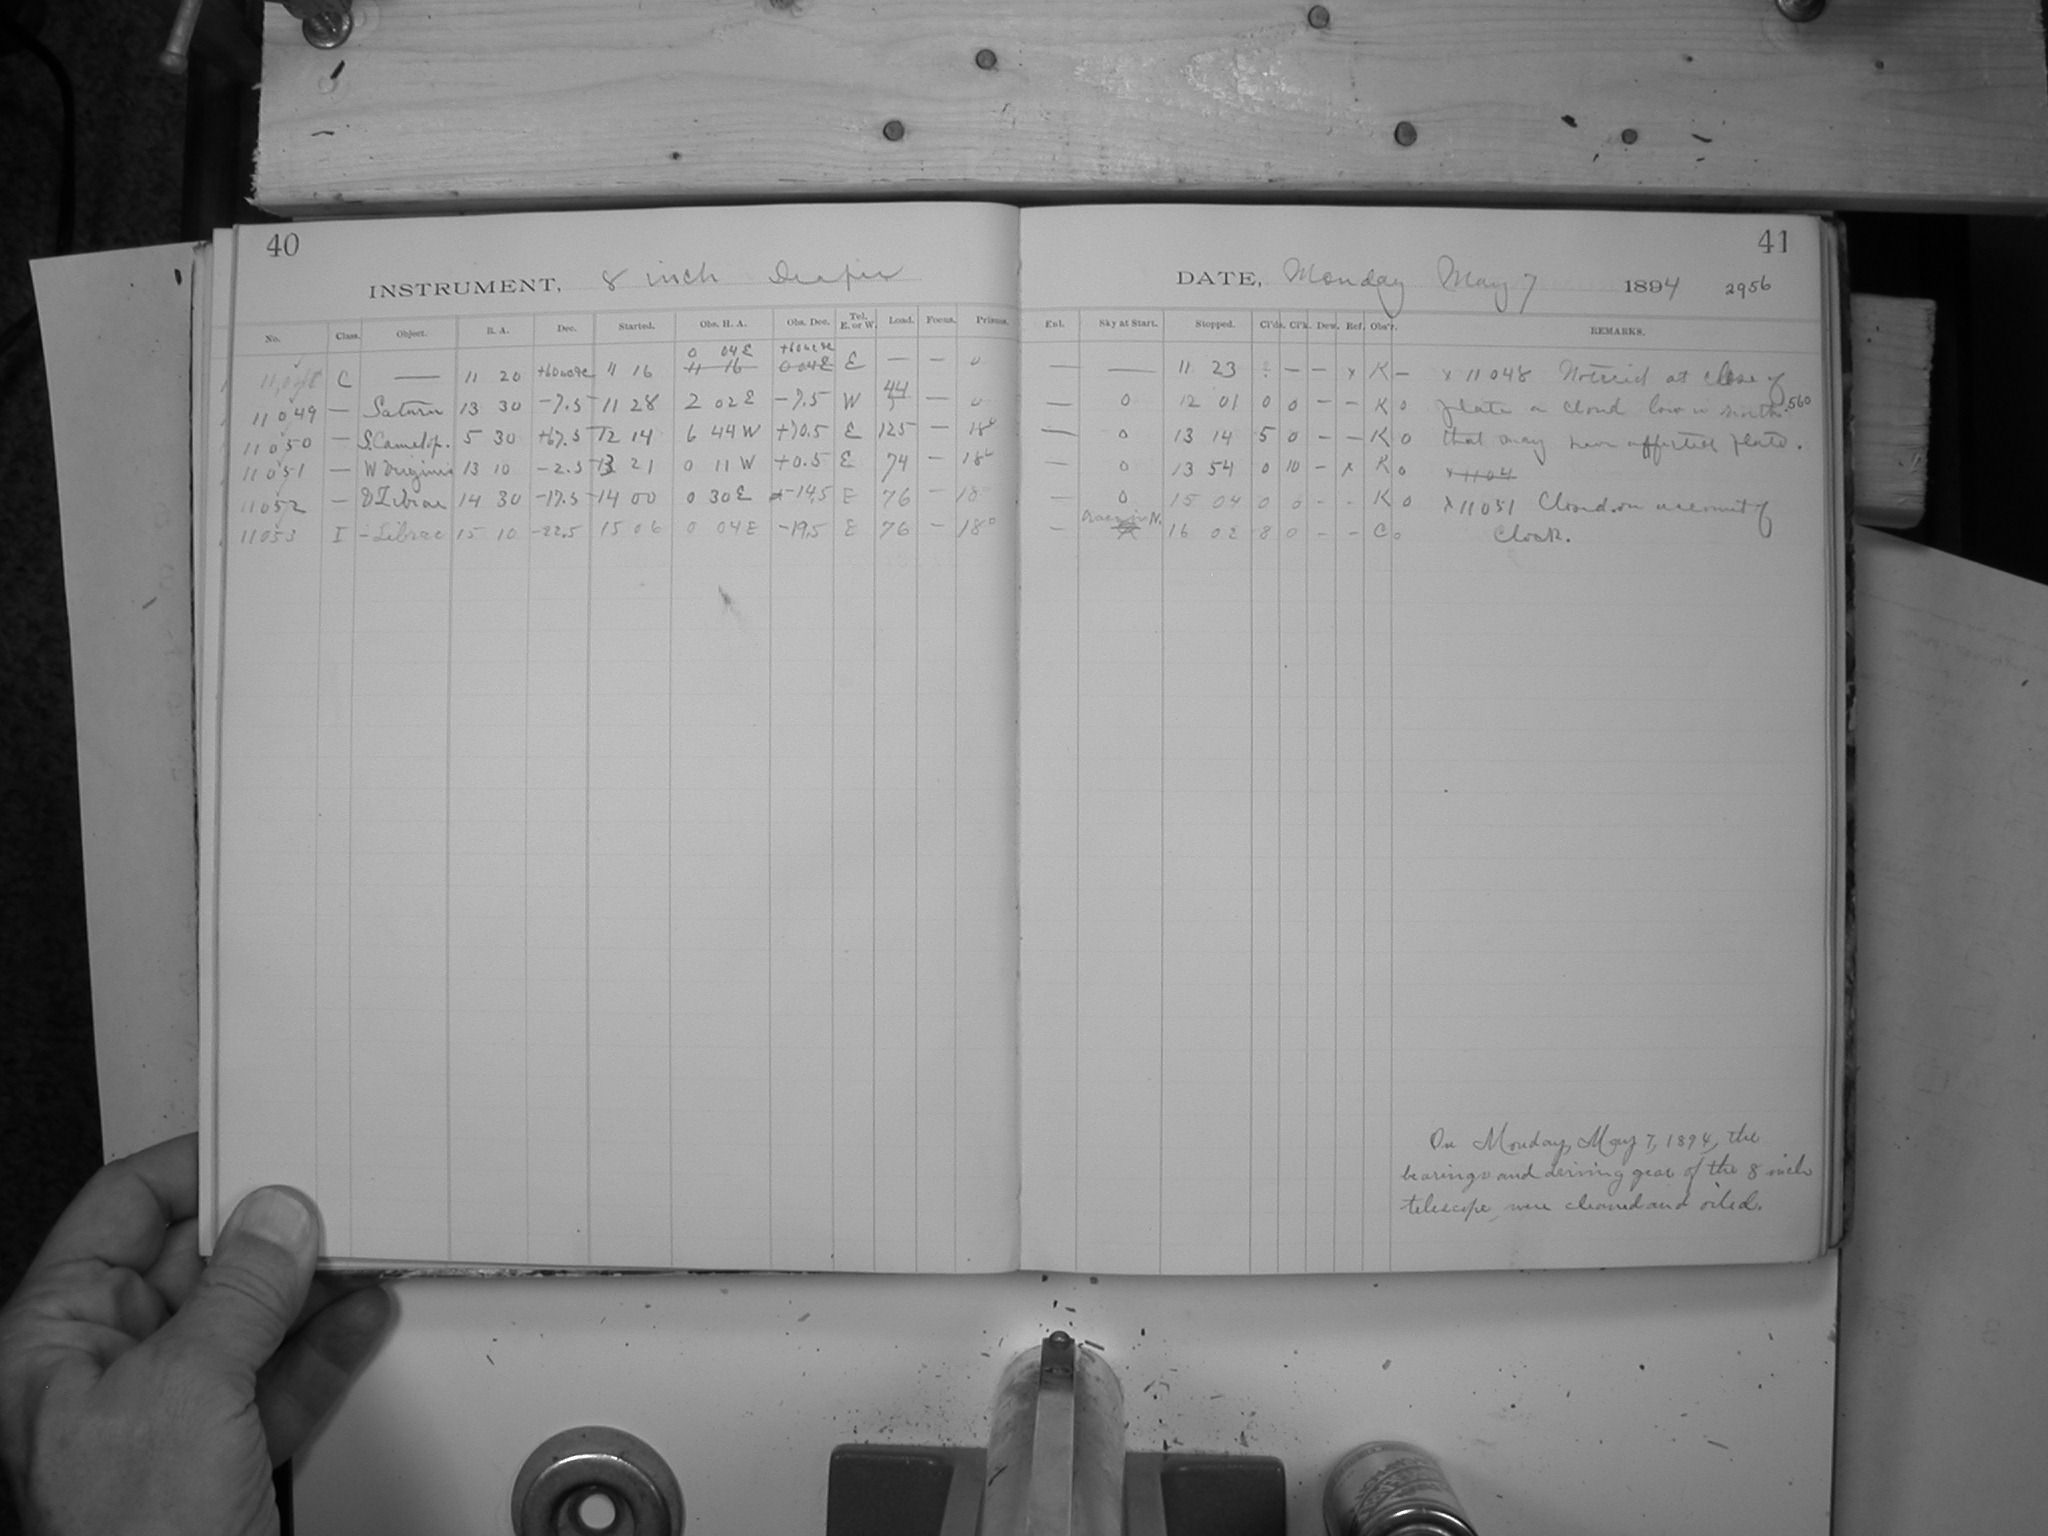 40
41
INSTRUMENT, 8 inch Draper
DATE, Monday May 7 1894 2956
No. Class. Object. R. A. Dec. Started. Obs. H. A. Obs. Dec. Tel. E. or W. Load. Focus. Prisms.
Enl. Sky at Start. Stopped. Cl'ds. Cl'k. Dew. Ref. Obs'r. REMARKS.
0 04E
11,048 C — 11 20 11 16 11 16 0 04E E — — 0 — — 11 23 - - x K - x 11048 Noticed at close of
11049 — Saturn 13 30 -7.5 11 28 2 02E -7.5 W 44 — 0 — 0 12 01 0 0 - - K 0 plate a cloud low in north .560
11050 — S. Camelop. 5 30 +67.5 12 14 6 44W +70.5 E 125 — 18° — 0 13 14 5 0 - - K 0 that may have affected plate.
11051 — W Virginis 13 10 -2.5 13 21 0 11W +0.5 E 74 — 18° — 0 13 54 0 10 - x K 0 x 1104
11052 — Librae 14 30 -17.5 14 00 0 30E -14.5 E 76 — 18 — 0 15 04 0 0 - - K 0 x 11051 Closed on account of
11053 I - Librae 15 10 -22.5 15 06 0 04E -19.5 E 76 — 18° — N. 16 02 8 0 - - C 0 Clock.
On Monday, May 7, 1894, the
bearings and driving gear of the 8 inch
telescope, were cleaned and oiled.